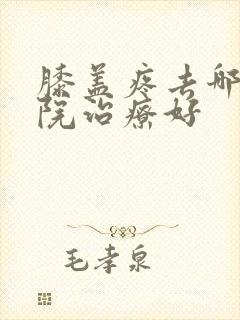 膝盖疼去哪
院治疗好
毛孝泉